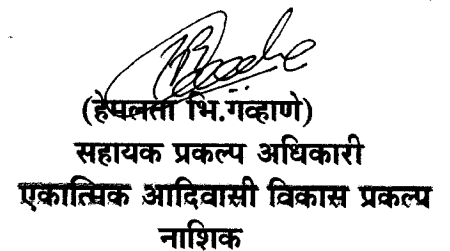 (हेमलता भि.गव्हाणे)
सहायक प्रकल्प अधिकारी
एकात्मिक आदिवासी विकास प्रकल्प
नाशिक